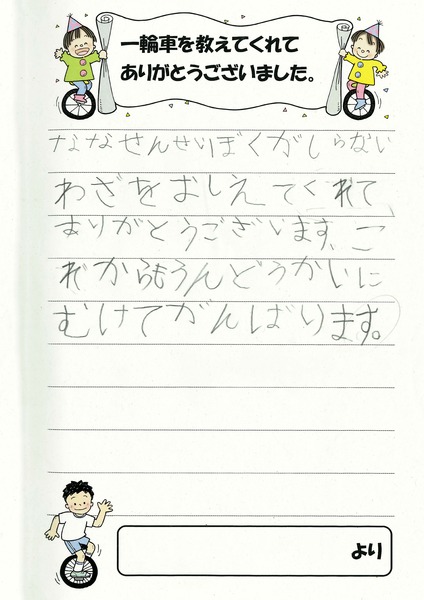 一輪車を教えてくれて
ありがとうございました。
ななせんせいぼくがしらない
わざをおしえてくれて
ありがとうございます、こ
れからもうんどうかいに
むけてがんばります。
より